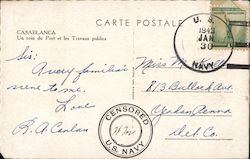 CARTE POSTALE
CASABLANCA
Un coin du Port et les Travaux publics
U. S.
1943
JAN
30
NAVY
Sis:
A very familiar
scene to me.
Love
Miss M.
813 Bullock Ave.
Yeadon, Penna
Del. Co.
CENSORED
U.S. NAVY